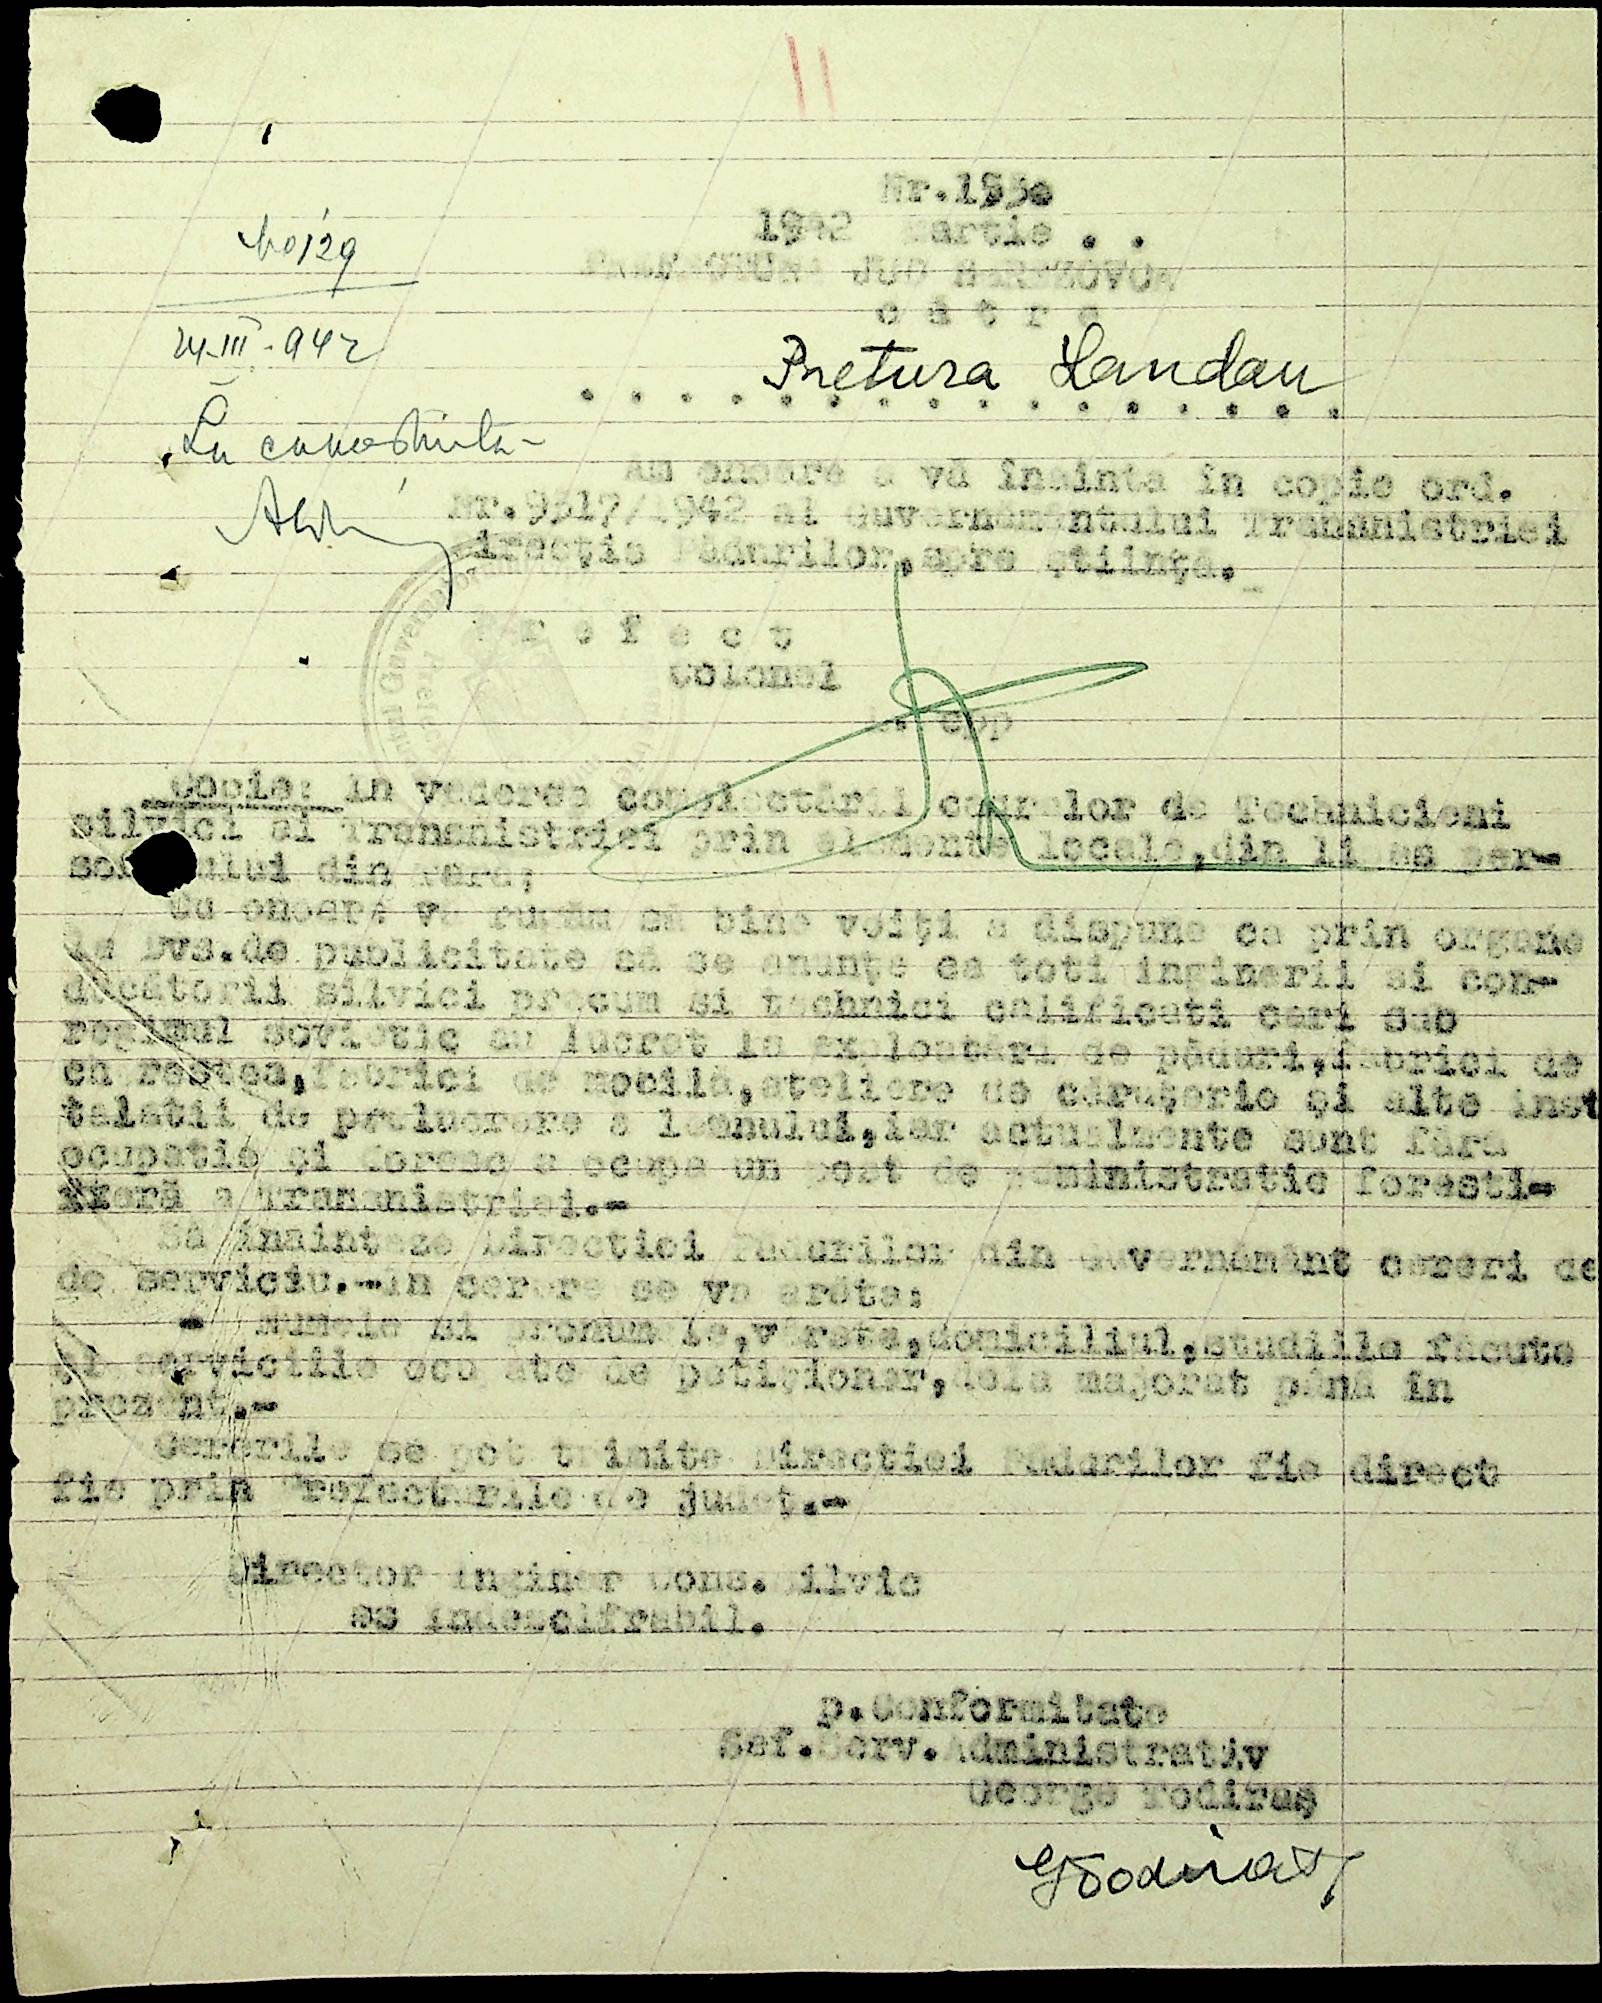 11
Nr.1550
1942 Martie . .
PREFECTURA JUD BEREZOVCA
c ă t r e
Pretura Landau
24-III-942
La cunostinta-
Am onoare a vă însinta în copie ord.
Nr.9517/1942 al Guvernământului Transnistriei
Direcţia Pădurilor,spre ştiinţa.
P r e f e c t
Colonel
Copie: In vederea complectării cadrelor de Technicieni
silvici ai Transnistriei prin elemente locale,din li sa per-
din tara;
Cu onoare vă rugăm să bine voiţi a dispune ca prin organe
le Dvs.de publicitate să se anunţe ca toti inginerii si con-
ducătorii silvici precum si technici calificati cari sub
regimul sovietic au lucrat la exploatări de păduri,fabrici de
ch restea,fabrici de mobilă,ateliere de căruţerie şi alte inst
talatii de prelucrare a lemnului,iar actualmente sunt fără
ocupatie şi doresc a ocupa un post de administratie foresti-
eră a Transnistriei.-
Să însinteze Direcţiei Pădurilor din Guvernământ cereri de
de serviciu.-In cerere se va arăta:
- Numele si pronumele,vârsta,domiciliul,studiile făcute
şi serviciile ocupate de petiţionar,dela majorat până în
prezent.-
Cererile se pot trimite Direcţiei Pădurilor fie direct
fie prin Prefecturile de judeţ.-
Director Inginer Cons. Silvic
ss indescifrabil.
p.Conformitate
Sef.Serv.Administrativ
George Todiraş